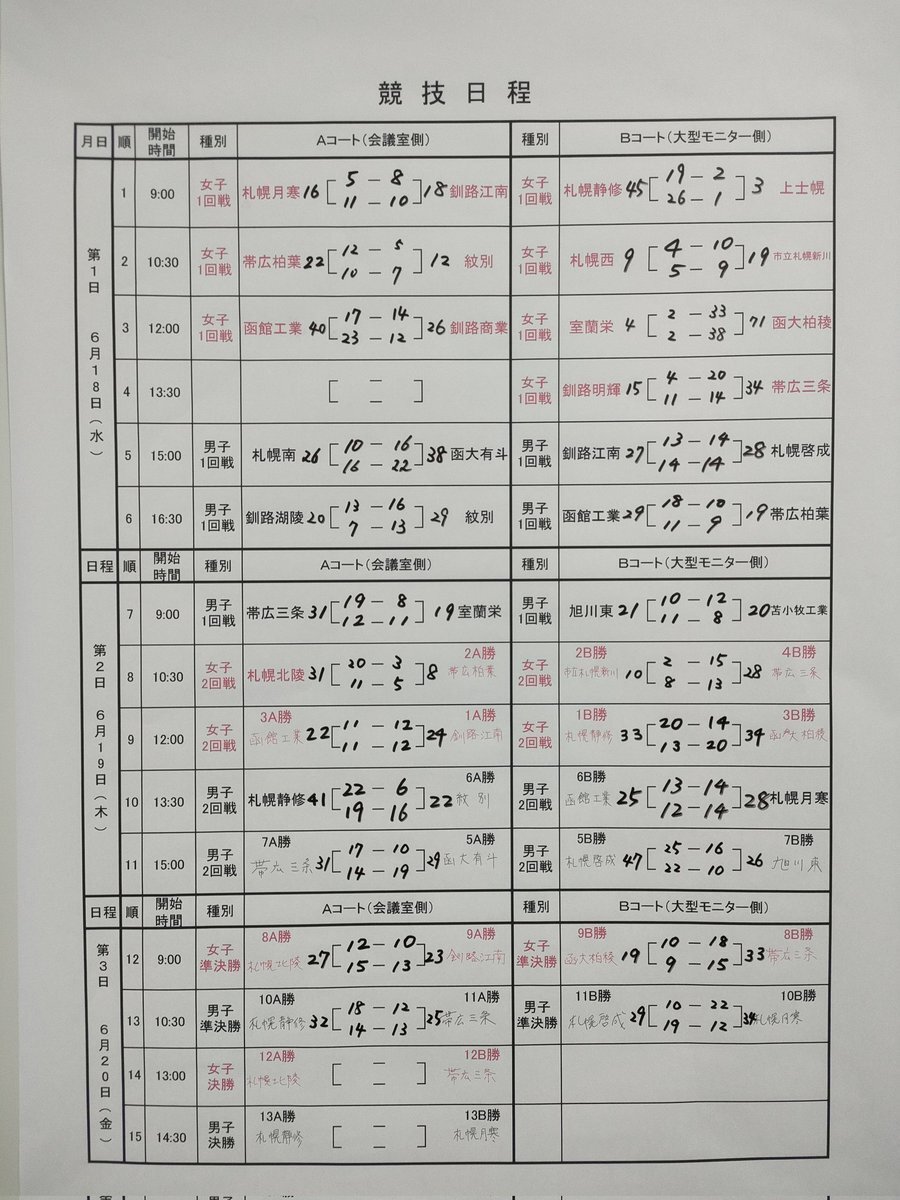 競技日程
月日 順 開始時間 種別 Aコート(会議室側) 種別 Bコート(大型モニター側)
第1日 6月18日(水)
1 9:00 女子1回戦 札幌月寒 16 [5 - 8 11 - 10] 18 釧路江南 女子1回戦 札幌静修 45 [19 - 2 26 - 1] 3 上士幌
2 10:30 女子1回戦 帯広柏葉 22 [12 - 5 10 - 7] 12 紋別 女子1回戦 札幌西 9 [4 - 10 5 - 9] 19 市立札幌新川
3 12:00 女子1回戦 函館工業 40 [17 - 14 23 - 12] 26 釧路商業 女子1回戦 室蘭栄 4 [2 - 33 2 - 38] 71 函大柏稜
4 13:30 [ - - ] 女子1回戦 釧路明輝 15 [4 - 20 11 - 14] 34 帯広三条
5 15:00 男子1回戦 札幌南 26 [10 - 16 16 - 22] 38 函大有斗 男子1回戦 釧路江南 27 [13 - 14 14 - 14] 28 札幌啓成
6 16:30 男子1回戦 釧路湖陵 20 [13 - 16 7 - 13] 29 紋別 男子1回戦 函館工業 29 [18 - 10 11 - 9] 19 帯広柏葉
日程 順 開始時間 種別 Aコート(会議室側) 種別 Bコート(大型モニター側)
第2日 6月19日(木)
7 9:00 男子1回戦 帯広三条 31 [19 - 8 12 - 11] 19 室蘭栄 男子1回戦 旭川東 21 [10 - 12 11 - 8] 20 苫小牧工業
8 10:30 女子2回戦 札幌北陵 31 [20 - 3 11 - 5] 8 2A勝 帯広柏葉 女子2回戦 2B勝 市立札幌新川 10 [2 - 15 8 - 13] 28 4B勝 帯広三条
9 12:00 女子2回戦 3A勝 函館工業 22 [11 - 12 11 - 12] 24 1A勝 釧路江南 女子2回戦 1B勝 札幌静修 33 [20 - 14 13 - 20] 34 3B勝 函大柏稜
10 13:30 男子2回戦 札幌静修 41 [22 - 6 19 - 16] 22 6A勝 紋別 男子2回戦 6B勝 函館工業 25 [13 - 14 12 - 14] 28 札幌月寒
11 15:00 男子2回戦 7A勝 帯広三条 31 [17 - 10 14 - 19] 29 5A勝 函大有斗 男子2回戦 5B勝 札幌啓成 47 [25 - 16 22 - 10] 26 7B勝 旭川東
日程 順 開始時間 種別 Aコート(会議室側) 種別 Bコート(大型モニター側)
第3日 6月20日(金)
12 9:00 女子準決勝 8A勝 札幌北陵 27 [12 - 10 15 - 13] 23 9A勝 釧路江南 女子準決勝 9B勝 函大柏稜 19 [10 - 18 9 - 15] 33 8B勝 帯広三条
13 10:30 男子準決勝 10A勝 札幌静修 32 [18 - 12 14 - 13] 25 11A勝 帯広三条 男子準決勝 11B勝 札幌啓成 29 [10 - 22 19 - 12] 34 10B勝 札幌月寒
14 13:00 女子決勝 12A勝 札幌北陵 [ - - ] 12B勝 帯広三条
15 14:30 男子決勝 13A勝 札幌静修 [ - - ] 13B勝 札幌月寒